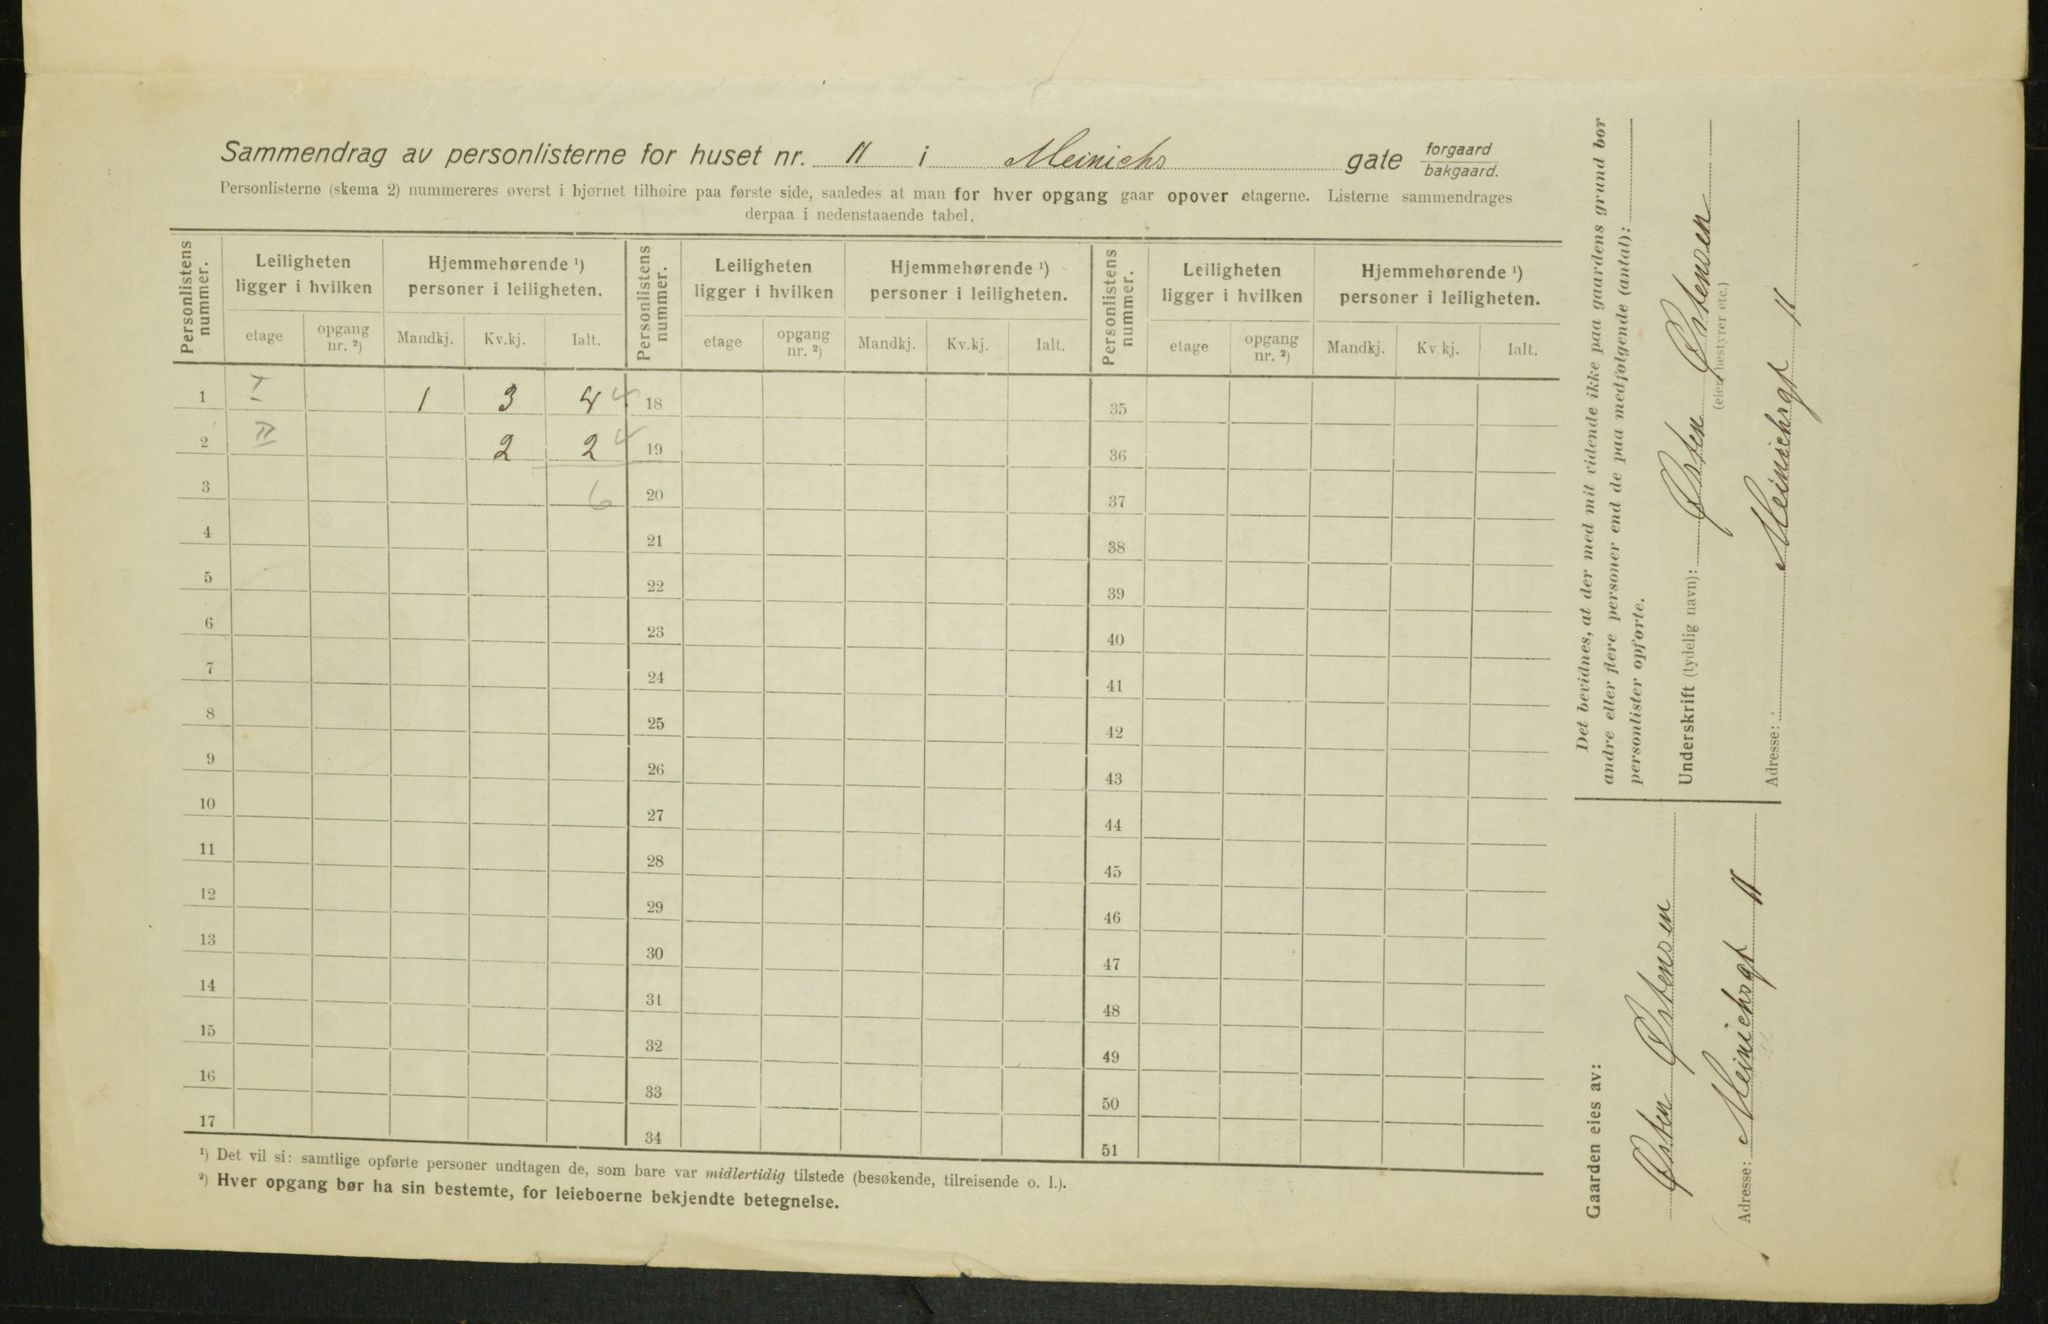 Sammendrag av personlisterne for huset nr. 11 i Meinichs gate forgaard bakgaard.
Personlisterne (skema 2) nummereres øverst i hjørnet tilhøire paa første side, saaledes at man for hver opgang gaar opover etagerne. Listerne sammendrages
derpaa i nedenstaaende tabel.
Personlistens nummer. Leiligheten ligger i hvilken Hjemmehørende ¹) personer i leiligheten. Personlistens nummer. Leiligheten ligger i hvilken Hjemmehørende ¹) personer i leiligheten. Personlistens nummer. Leiligheten ligger i hvilken Hjemmehørende ¹) personer i leiligheten.
etage opgang nr. ²) Mandkj. Kv.kj. Ialt. etage opgang nr. ²) Mandkj. Kv.kj. Ialt. etage opgang nr. ²) Mandkj. Kv.kj. Ialt.
1 I 1 3 4 4 18 35
2 II 2 2 4 19 36
3 6 20 37
4 21 38
5 22 39
6 23 40
7 24 41
8 25 42
9 26 43
10 27 44
11 28 45
12 29 46
13 30 47
14 31 48
15 32 49
16 33 50
17 34 51
¹) Det vil si: samtlige opførte personer undtagen de, som bare var midlertidig tilstede (besøkende, tilreisende o. l.).
²) Hver opgang bør ha sin bestemte, for leieboerne bekjendte betegnelse.
Gaarden eies av:
Østen Østensen
Adresse: Meinichsgt 11
Det bevidnes, at der med mit vidende ikke paa gaardens grund bor
andre eller flere personer end de paa medfølgende (antal):
personlister opførte.
Underskrift (tydelig navn): Østen Østensen
(eier, bestyrer etc.)
Adresse: Meinichsgt 11